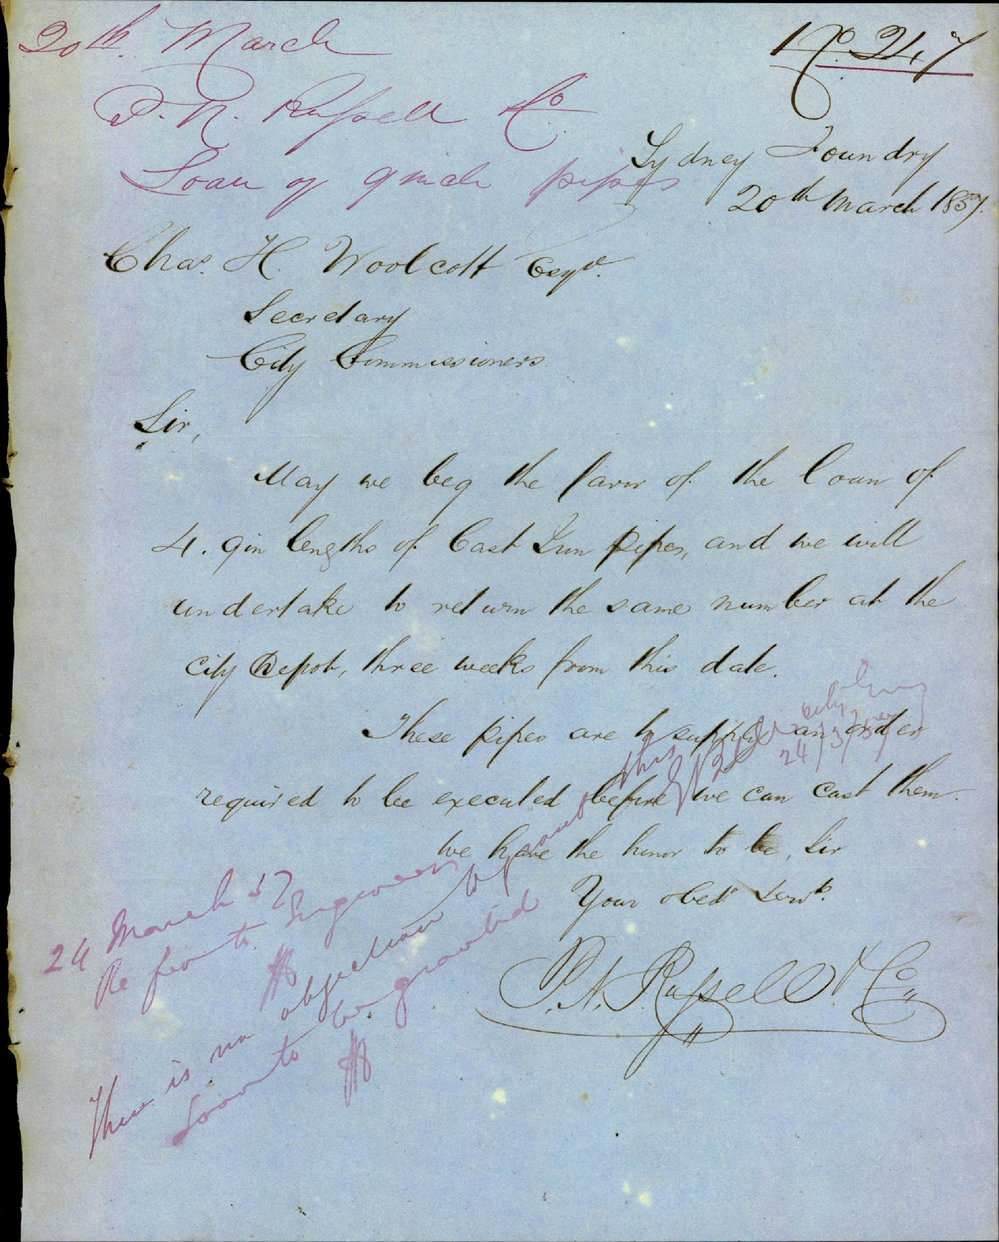 20th March
P. N. Russell & Co
Loan of 9 inch pipes
No. 247
Sydney Foundry
20th March 1857.
Chas. H. Woolcott Esqr.
Secretary
City Commissioners
Sir,
May we beg the favor of the loan of
4. 9in lengths of Cast Iron pipes, and we will
undertake to return the same number at the
City Depot, three weeks from this date.
These pipes are to supply an order
required to be executed before we can cast them.
We have the honor to be, Sir
Your obedt Servts.
P. N. Russell & Co
24 March 57
Refer to Engineer
There is no objection to grant this
City Eng
24/3/57
Loan to be granted